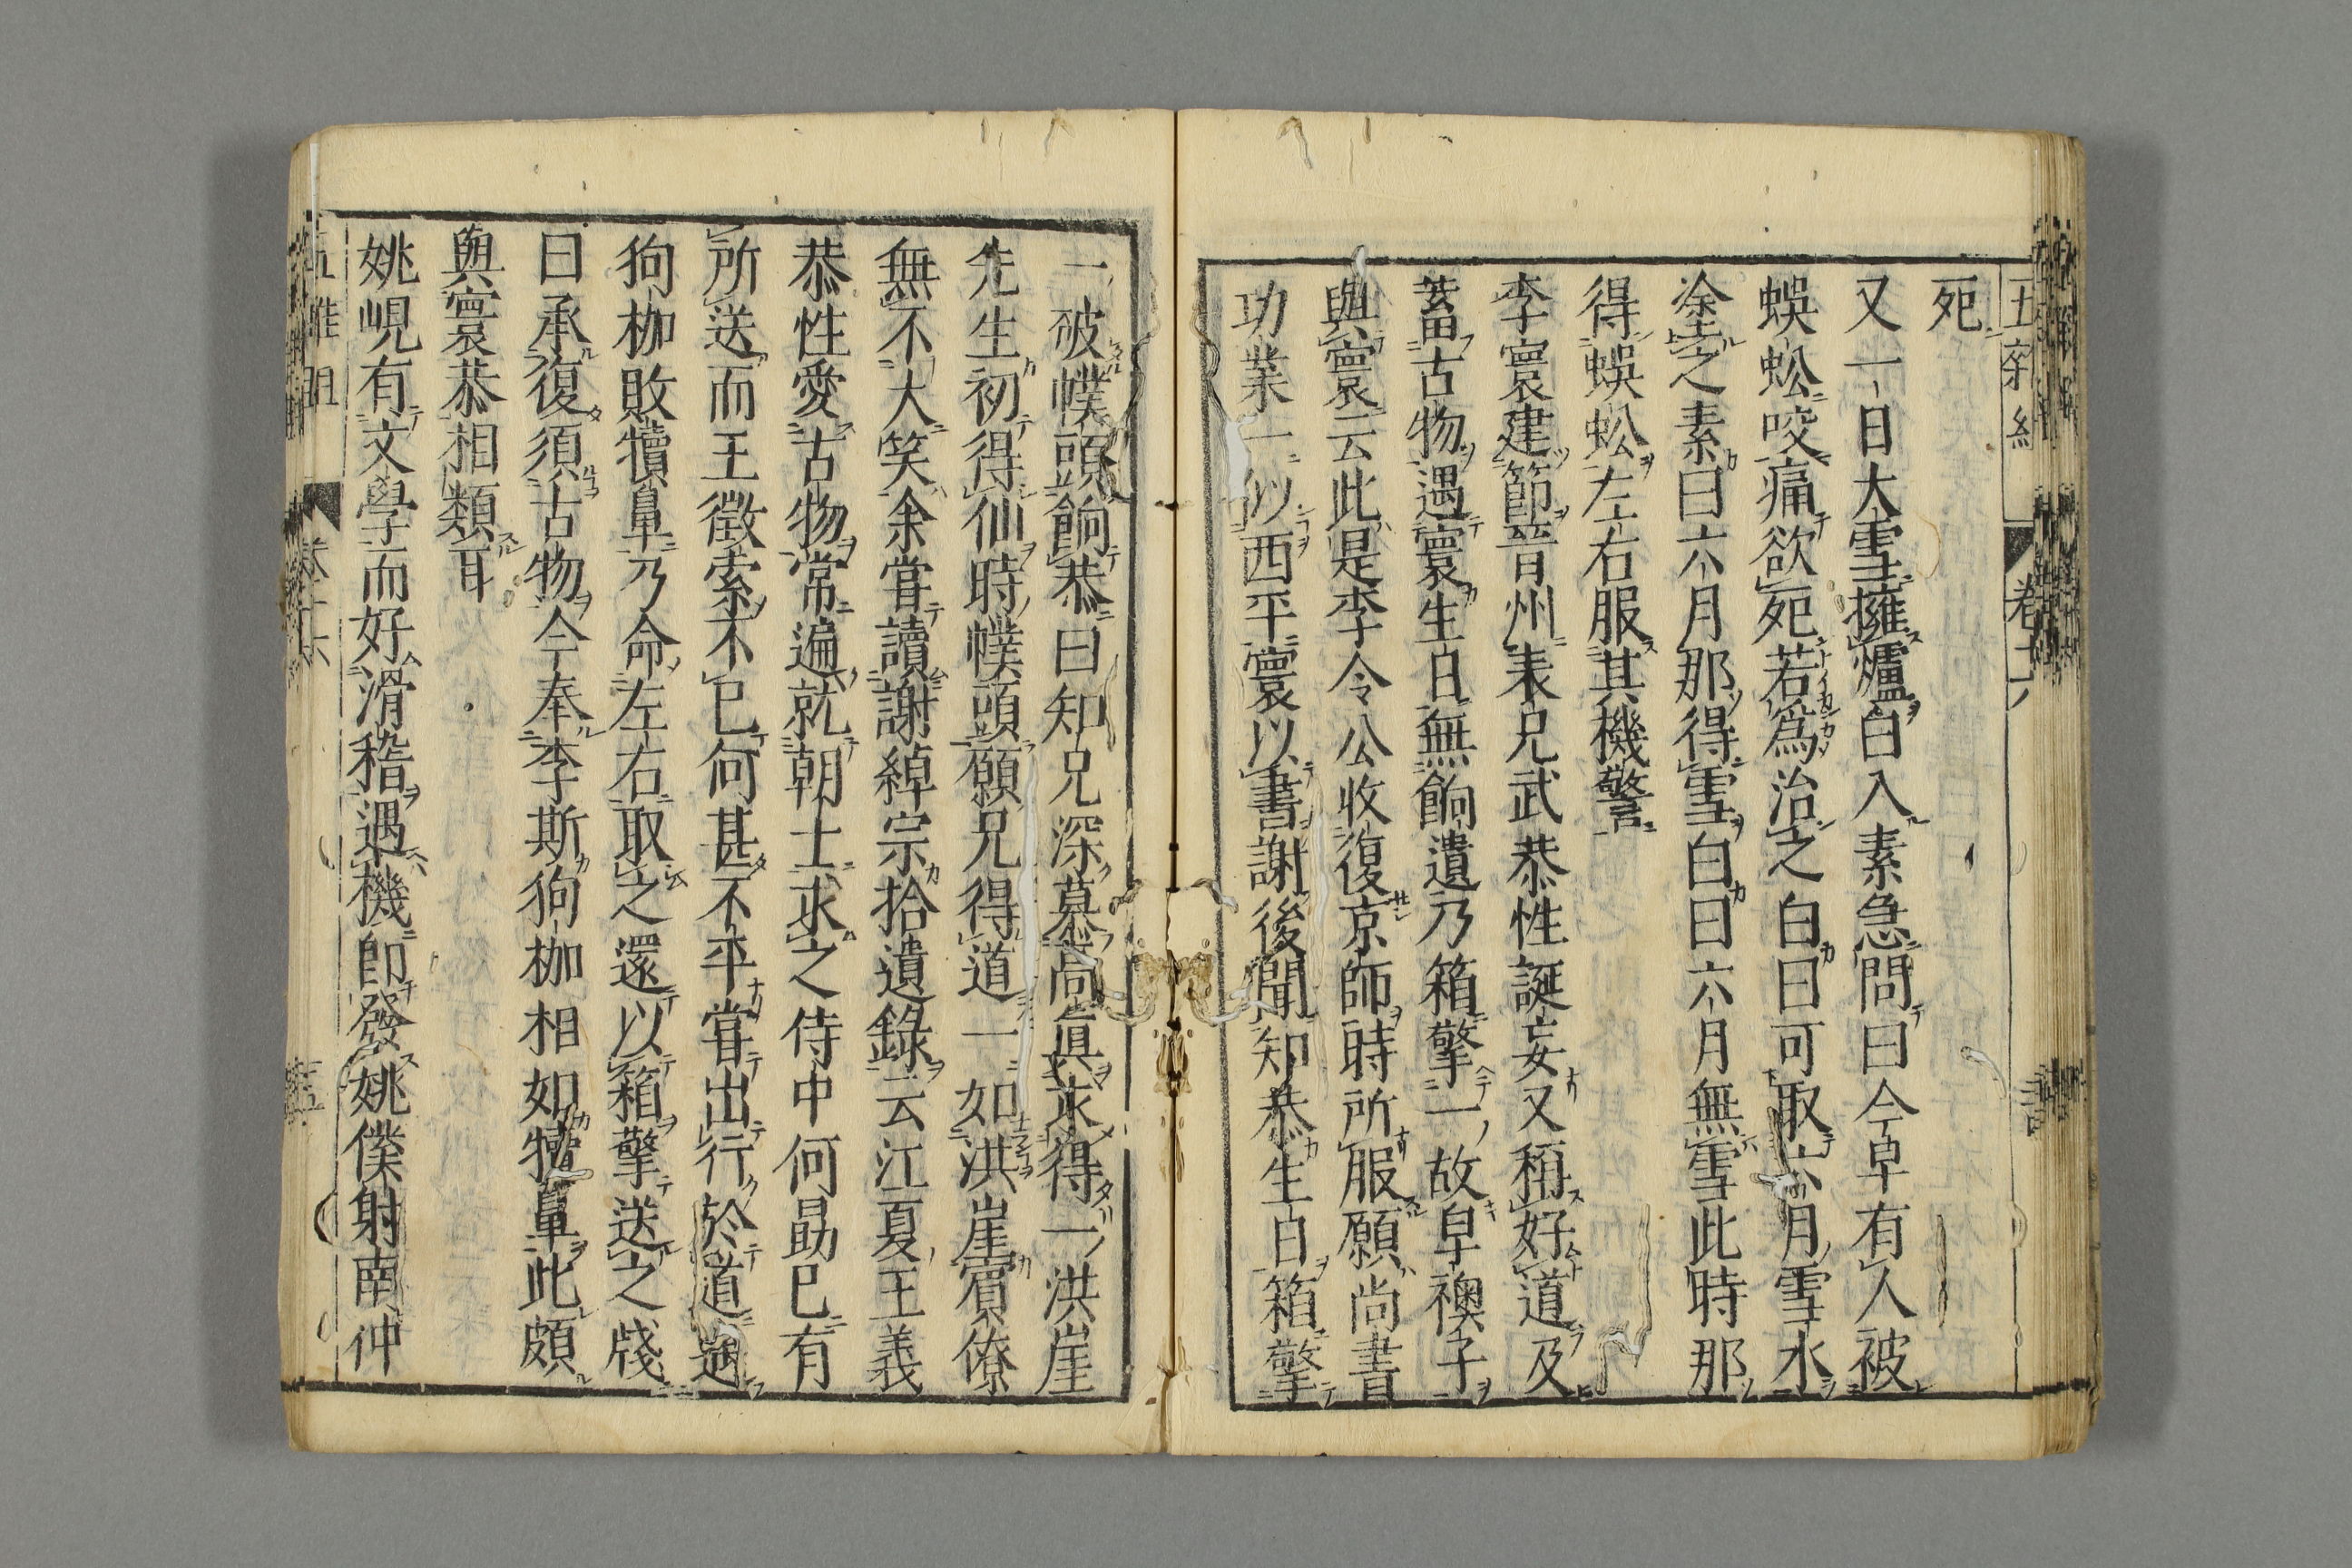 死
又一日大雪擁爐白入素急問曰今早有人被
蜈蚣咬痛欲死若為治之白曰可取六月雪水
塗之素曰六月那得雪白曰六月無雪此時那
得蜈蚣左右服其機警
李寰建節晉州表兄武恭性誕妄又稱好道及
蓄古物遇寰生日無餉遺乃箱擎一故皁襖子
與寰云此是李令公收復京師時所服願尚書
功業一似西平寰以書謝後聞知恭生日箱擎
一破幞頭餉恭曰知兄深慕高眞求得一洪崖
先生初得仙時幞頭願兄得道一如洪崖賓僚
無不大笑余嘗讀謝綽宗拾遺錄云江夏王義
恭性愛古物常遍就朝士求之侍中何勗已有
所送而王徵索不已何甚不平嘗出行於道遇
狗枷敗犢鼻乃命左右取之還以箱擎送之牋
曰承復須古物今奉李斯狗枷相如犢鼻此頗
與寰恭相類耳
姚峴有文學而好滑稽遇機即發姚僕射南仲
卷十六